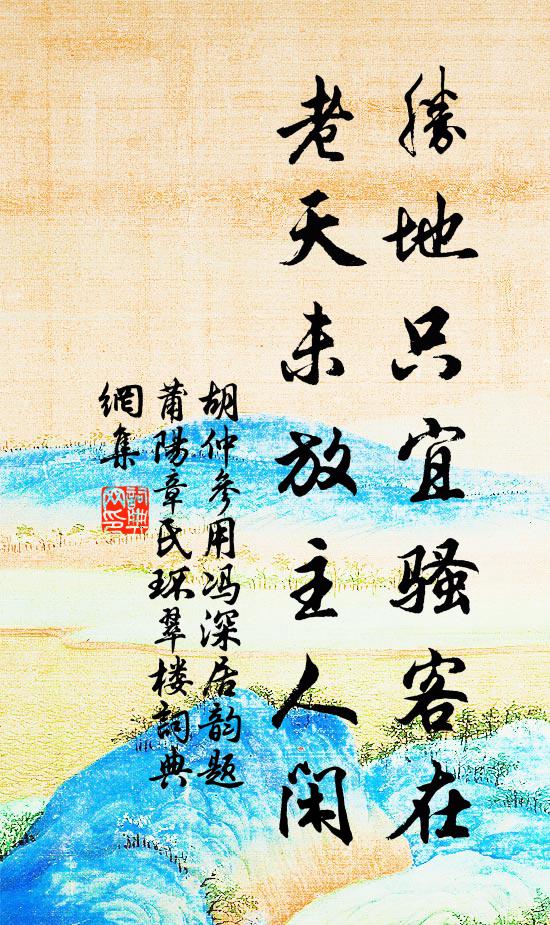 勝地只宜骚客在
老天未放主人闲
胡仲参用冯深居韵题
莆陽章氏环翠楼詞典
網集
詞典
网印